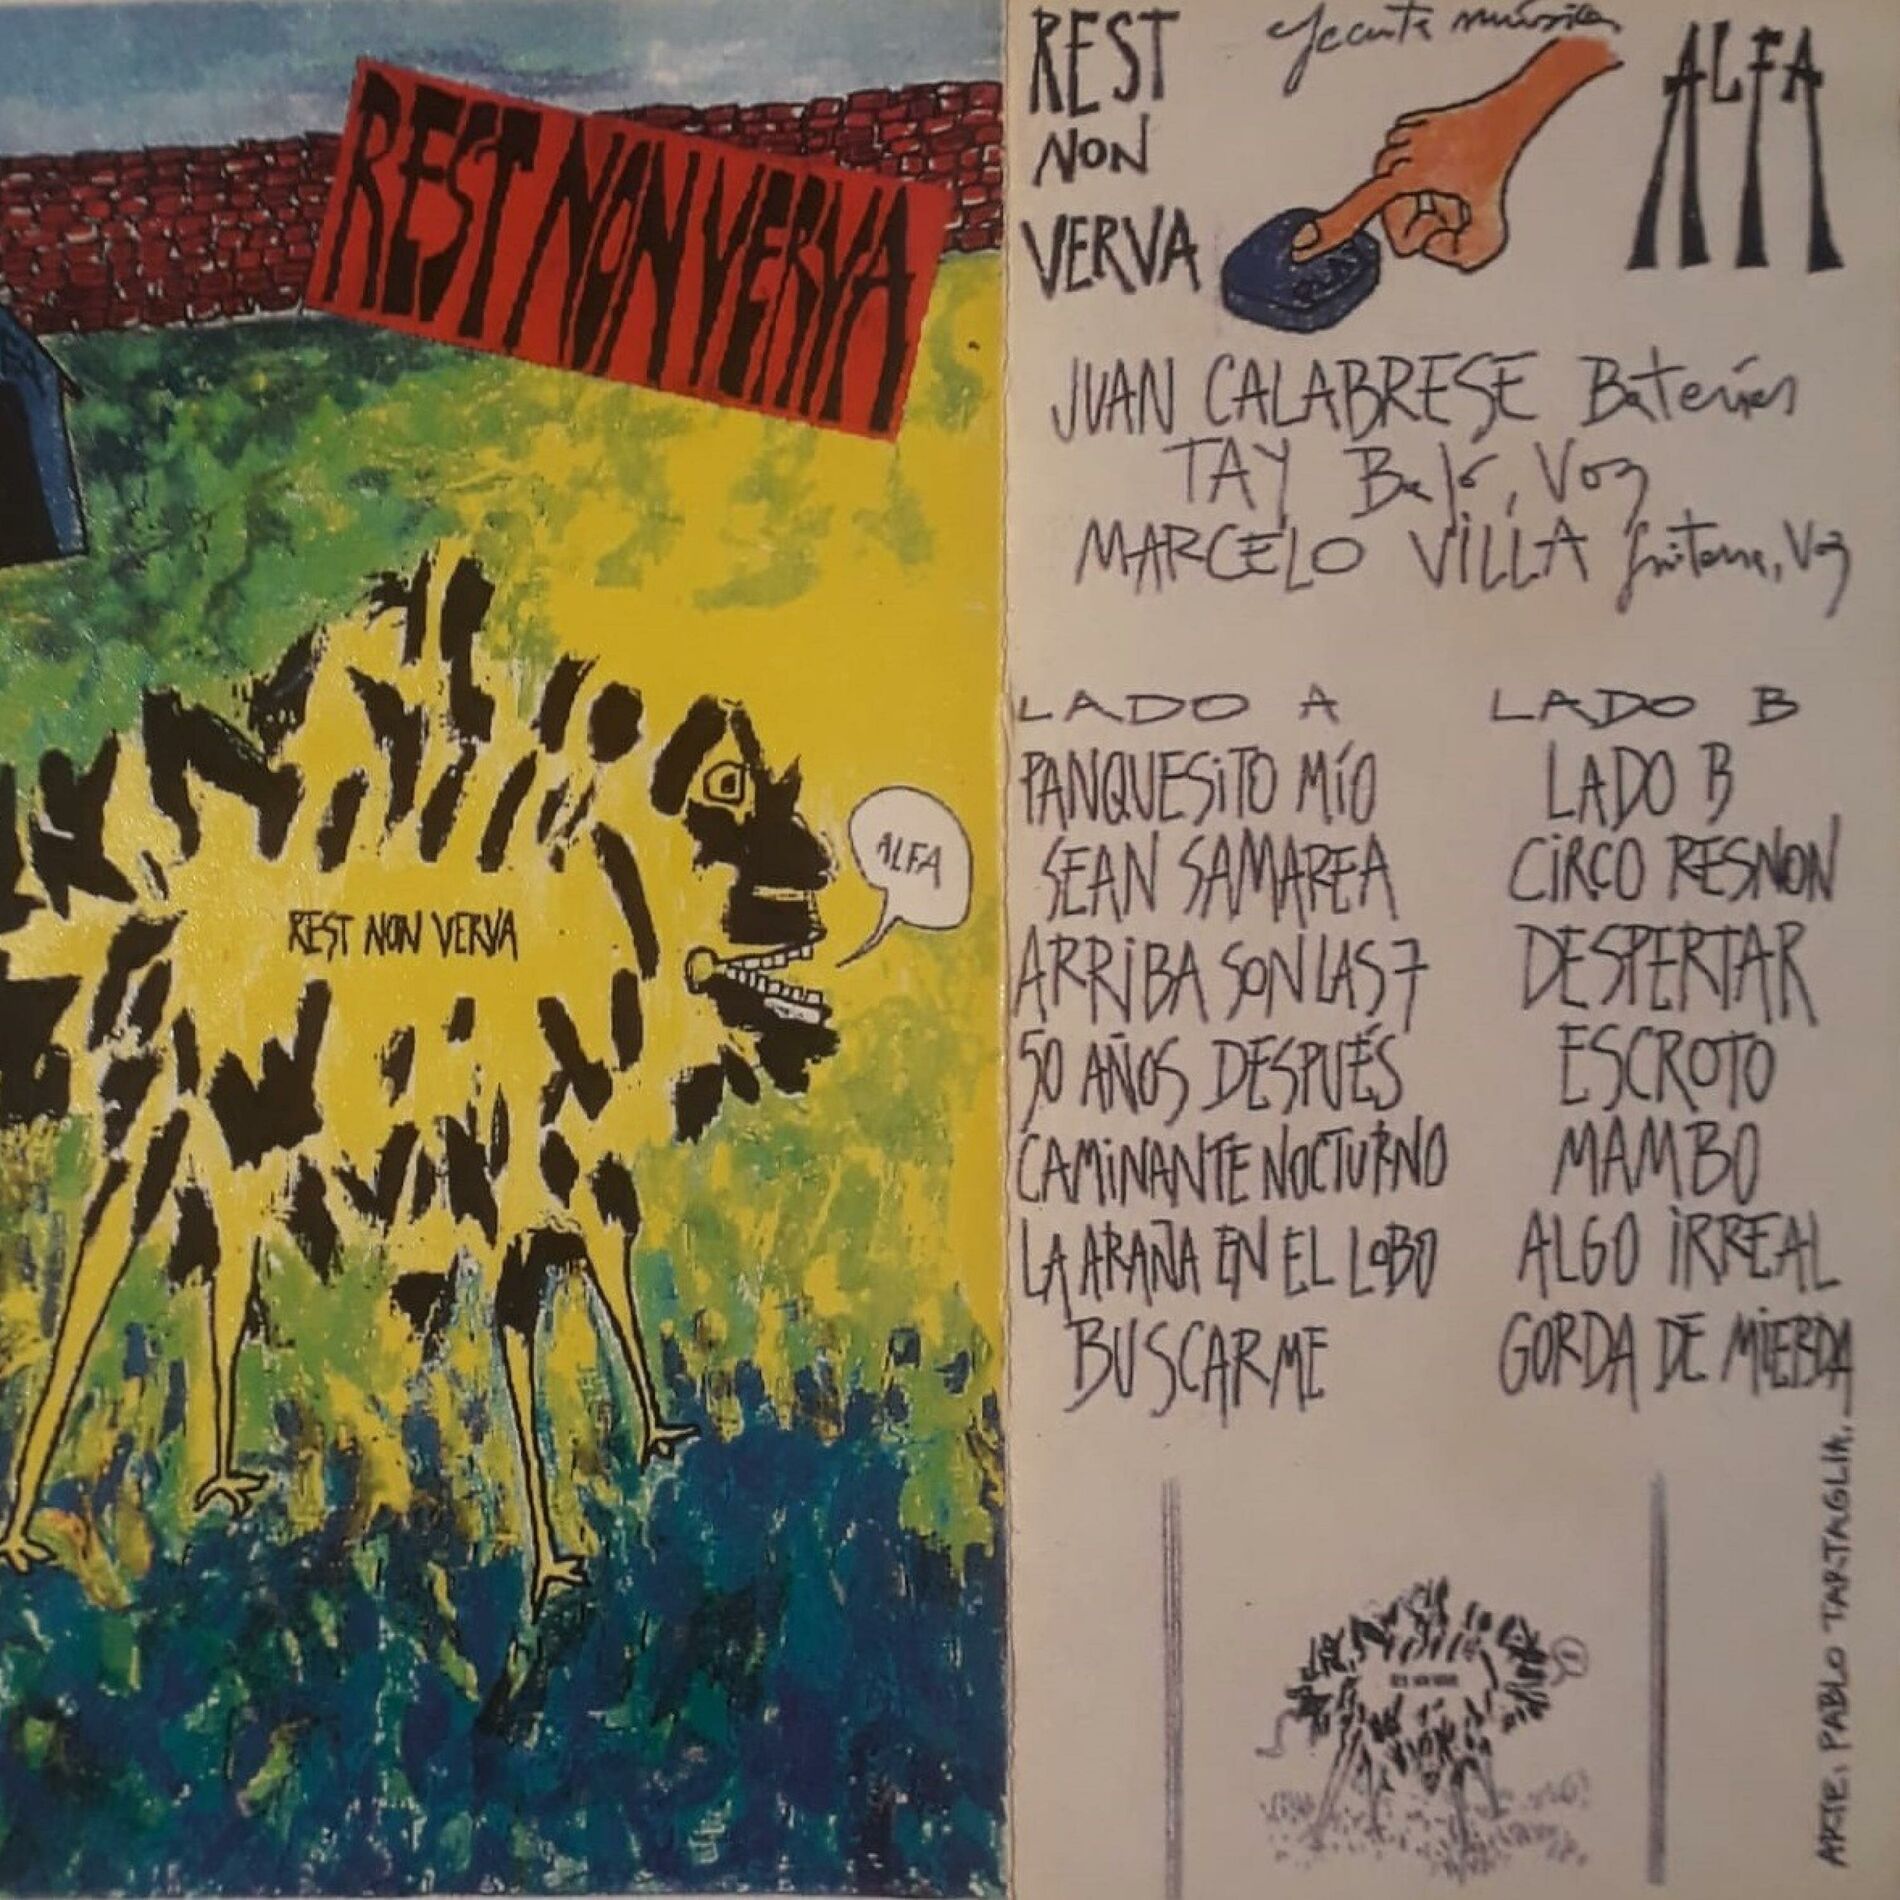 REST NON VERVA
REST NON VERVA
ALFA
REST
NON
VERVA
ALFA
JUAN CALABRESE Baterías
TAY Bajo, Voz
MARCELO VILLA guitarra, Voz
LADO A
PANQUESITO MÍO
SEAN SAMAREA
ARRIBA SON LAS 7
50 AÑOS DESPUÉS
CAMINANTE NOCTURNO
LA ARAÑA EN EL LOBO
BUSCARME
LADO B
LADO B
CIRCO RESNON
DESPERTAR
ESCROTO
MAMBO
ALGO IRREAL
GORDA DE MIERDA
ARTE: PABLO TARTAGLIA.
REST NON VERVA